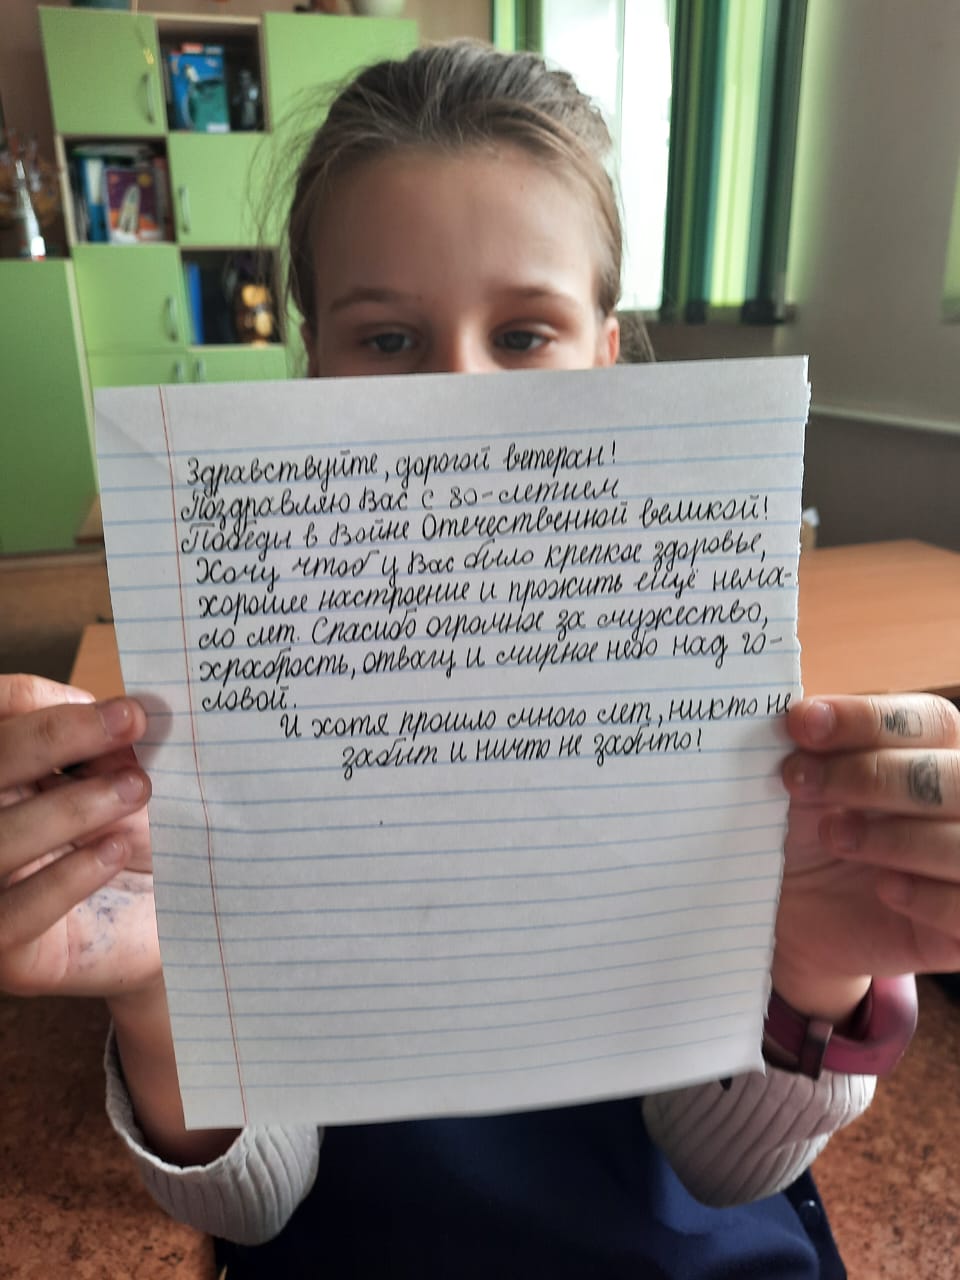 Здравствуйте, дорогой ветеран!
Поздравляю Вас с 80-летием
Победы в Войне Отечественной великой!
Хочу чтоб у Вас было крепкое здоровье,
хорошее настроение и прожить ещё нема-
ло лет. Спасибо огромное за мужество,
храбрость, отвагу и мирное небо над го-
ловой.
И хотя прошло много лет, никто не
забыт и ничто не забыто!